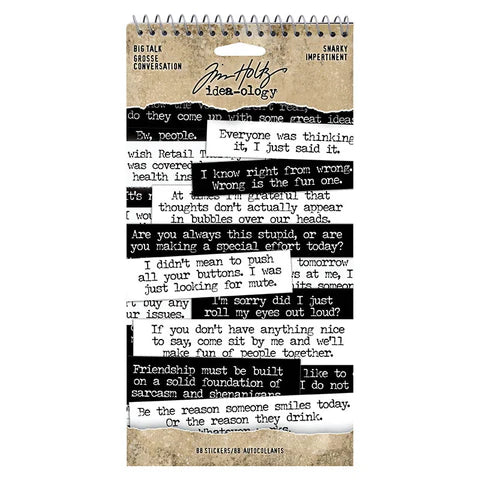 BIG TALK
GROSSE
CONVERSATION
SNARKY
IMPERTINENT
Tim Holtz
idea-ology
do they come up with some great ideas
Ew, people.
Everyone was thinking
it, I just said it.
wish Retail
was covered
health ins
I know right from wrong.
Wrong is the fun one.
It's
At times I'm grateful that
thoughts don't actually appear
in bubbles over our heads.
I wou
Are you always this stupid, or are
you making a special effort today?
I didn't mean to push
all your buttons. I was
just looking for mute.
tomorrow
s at me, I
its someone
t buy any
ur issues.
I'm sorry did I just
roll my eyes out loud?
If you don't have anything nice
to say, come sit by me and we'll
make fun of people together.
Friendship must be built
on a solid foundation of
sarcasm and shenanigans.
like to
I do not
Be the reason someone smiles today.
Or the reason they drink.
Whatever works.
88 STICKERS/88 AUTOCOLLANTS